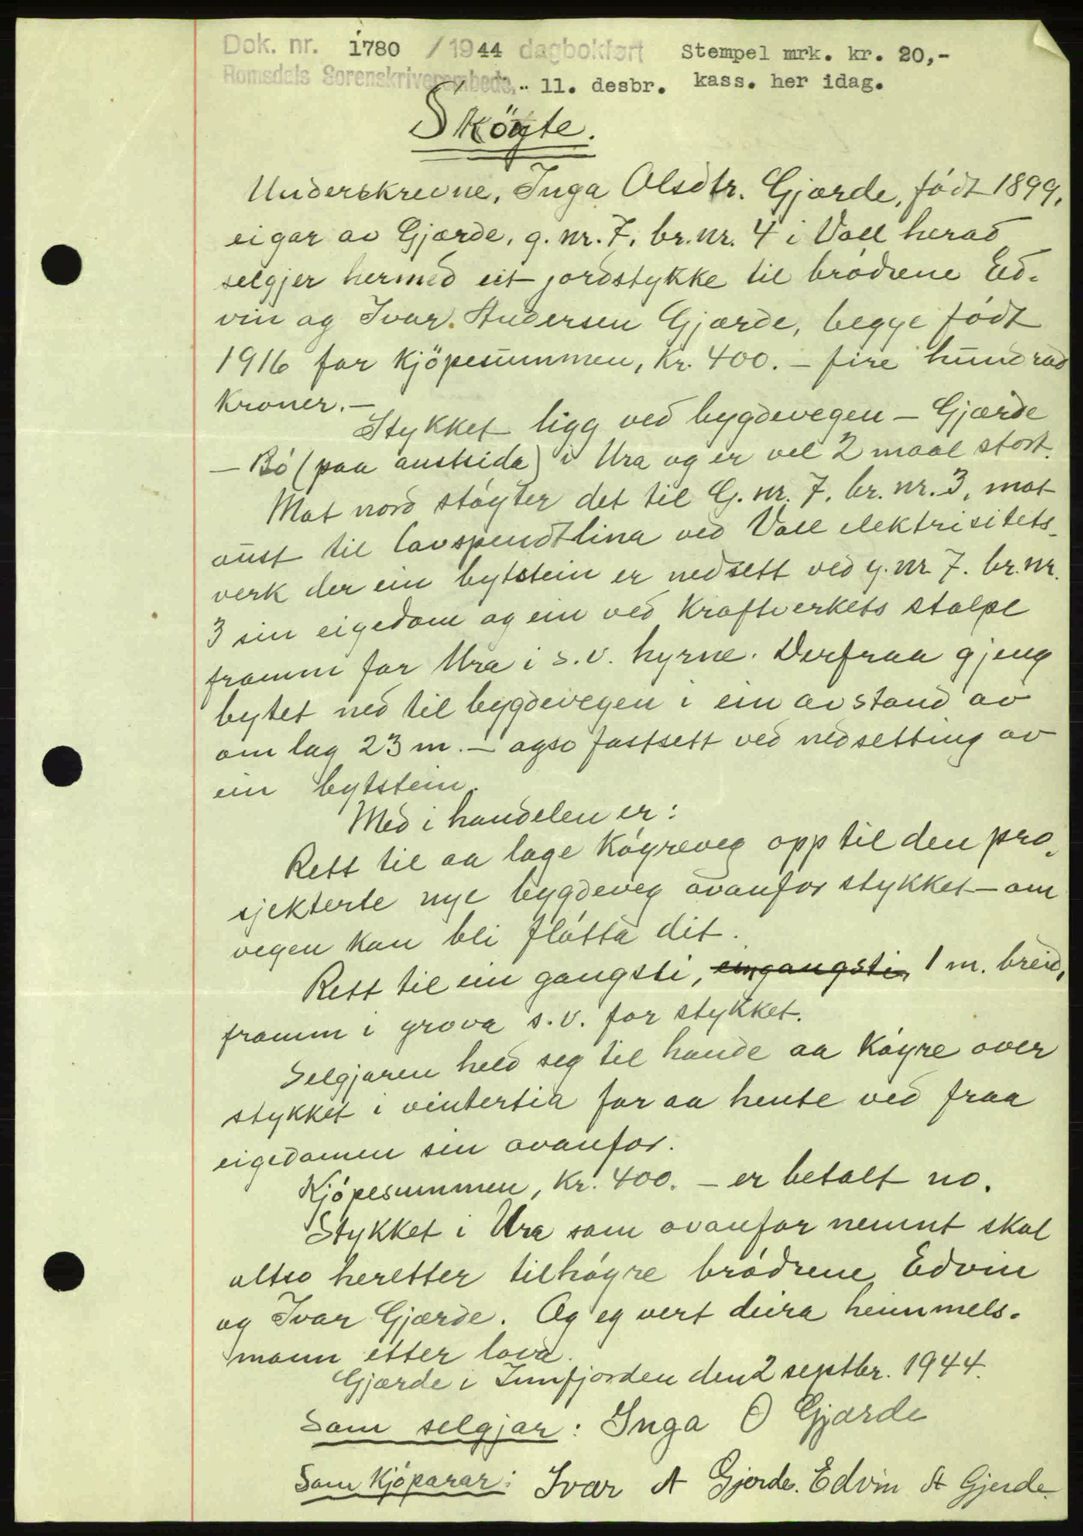 Dok. nr. 1780 /1944 dagbokført Stempel mrk. kr. 20,-
Romsdals Sorenskriverembede, 11. desbr. kass. her idag.
Sköyte.
Underskrevne, Inga Olsdtr. Gjærde, født 1899,
eigar av Gjærde, g. nr. 7, br. nr. 4 i Voll herad
selgjer hermed eit jordstykke til brødrene Ed-
vin og Ivar Andersen Gjærde, begge født
1916 for kjöpesummen, kr. 400. — fire hundrad
kroner. —
Stykket ligg ved bygdevegen — Gjærde
— Bö (paa austsida) i Ura og er vel 2 maal stort.
Mot nord støyter det til G. nr. 7. br. nr. 3, mot
aust til lavspendtlina ved Voll elektrisitets-
verk der ein bytstein er nedsett ved g. nr 7. br. nr.
3 sin eigedom og ein ved Kraftverkets stolpe
framm for Ura i s.v. hyrne. Derfraa gjeng
bytet ned til bygdevegen i ein avstand av
om lag 23 m. — ogso fastsett ved nedsetting av
ein bytstein.
Med i handelen er:
Rett til aa lage Køyreveg opp til den pro-
sjekterte nye bygdeveg ovanfor stykket — om
vegen kan bli fløtta dit.
Rett til ein gangsti, 1 m. breid,
framm i grova s.v. for stykket.
Selgjaren held seg til hande aa Køyre over
stykket i vintertia for aa hente ved fraa
eigedomen sin ovanfor.
Kjøpesummen, kr. 400. — er betalt no.
Stykket i Ura som ovanfor nemnt skal
altso heretter tilhøyre brødrene Edvin
og Ivar Gjærde. Og eg vert deira heimmels-
mann etter lova.
Gjærde i Innfjorden den 2 septbr. 1944.
Som selgjar: Inga O Gjærde
Som Kjøparar: Ivar A Gjerde. Edvin A Gjerde.